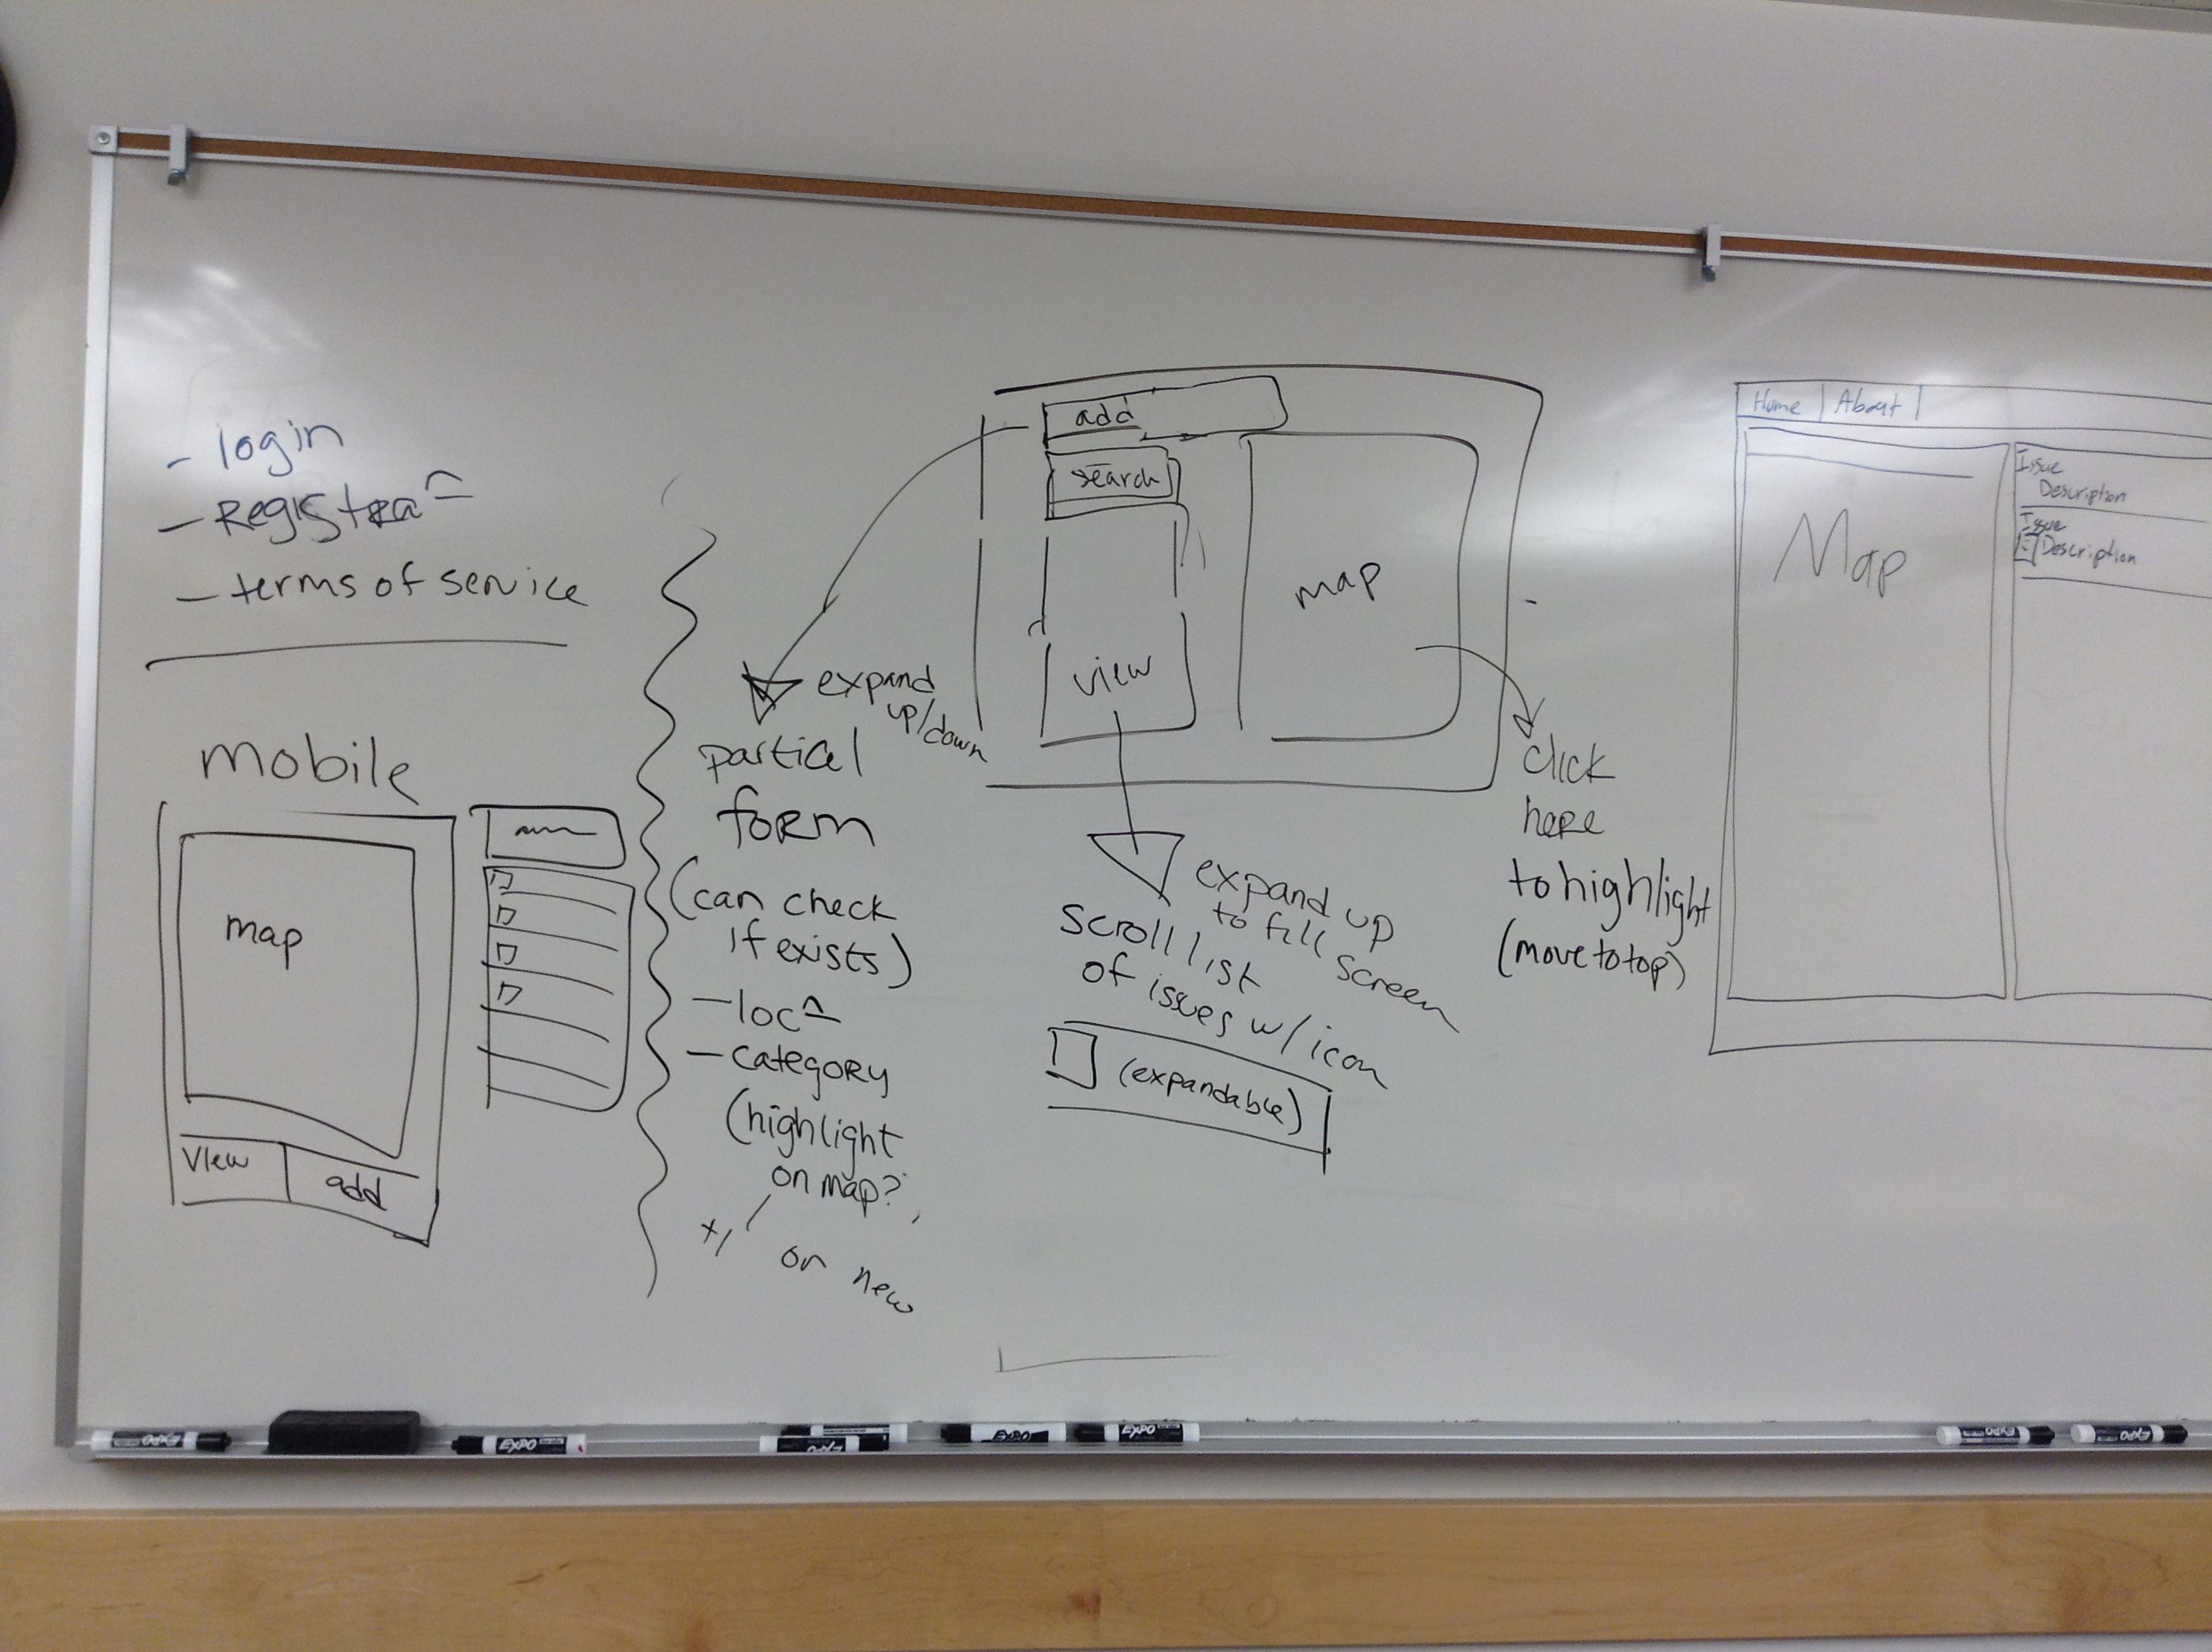 - login
- Registra^n
- terms of service
mobile
map
View
add
add
search
view
map
expand
up/down
partial
form
(can check
if exists)
- loc^n
- category
(highlight
on map?
+1
or new
expand up
to fill screen
scroll list
of issues w/ icon
(expandable)
click
here
to highlight
(move to top)
Home
About
Map
Issue
Description
Issue
Description
EXPO
EXPO
EXPO
EXPO
EXPO
EXPO
EXPO